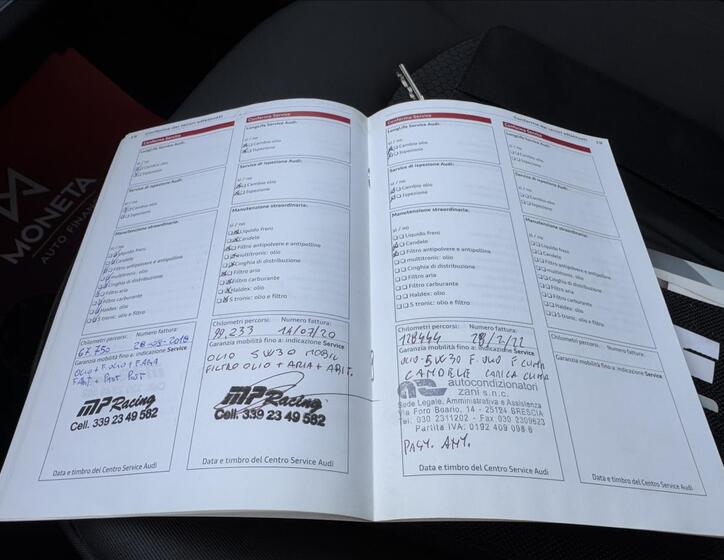 18 Conferma dei lavori effettuati
Conferma Service
LongLife Service Audi:
sì / no
Cambio olio
Ispezione
Service di ispezione Audi:
sì / no
Cambio olio
Ispezione
Manutenzione straordinaria:
sì / no
Liquido freni
Candele
Filtro antipolvere e antipolline
multitronic: olio
Cinghia di distribuzione
Filtro aria
Filtro carburante
Haldex: olio
S tronic: olio e filtro
Chilometri percorsi: Numero fattura:
67.750 28-03-2019
Garanzia mobilità fino a: indicazione Service
OLIO + F.OLIO + F.ARIA
MP Racing
Cell. 339 23 49 582
Data e timbro del Centro Service Audi
Conferma Service
LongLife Service Audi:
sì / no
Cambio olio
Ispezione
Service di ispezione Audi:
sì / no
Cambio olio
Ispezione
Manutenzione straordinaria:
sì / no
Liquido freni
Candele
Filtro antipolvere e antipolline
multitronic: olio
Cinghia di distribuzione
Filtro aria
Filtro carburante
Haldex: olio
S tronic: olio e filtro
Chilometri percorsi: Numero fattura:
99.233 14/07/20
Garanzia mobilità fino a: indicazione Service
OLIO 5W30 MOBIL
FILTRO OLIO + ARIA + ABIT.
MP Racing
Cell. 339 23 49 582
Data e timbro del Centro Service Audi
Conferma Service
LongLife Service Audi:
sì / no
Cambio olio
Ispezione
Service di ispezione Audi:
sì / no
Cambio olio
Ispezione
Manutenzione straordinaria:
sì / no
Liquido freni
Candele
Filtro antipolvere e antipolline
multitronic: olio
Cinghia di distribuzione
Filtro aria
Filtro carburante
Haldex: olio
S tronic: olio e filtro
Chilometri percorsi: Numero fattura:
128444 28/2/22
Garanzia mobilità fino a: indicazione Service
OLIO-5W30 F.OLIO F CLIMA
CANDELE CARICA CLIMA
autocondizionatori
zani s.n.c.
Sede Legale, Amministrativa e Assistenza
Via Foro Boario, 14 - 25124 BRESCIA
Tel. 030 2311202 - Fax 030 2309623
Partita IVA: 0192 409 098 6
PAST. ANT.
Data e timbro del Centro Service Audi
Conferma dei lavori effettuati 19
Conferma Service
LongLife Service Audi:
sì / no
Cambio olio
Ispezione
Service di ispezione Audi:
sì / no
Cambio olio
Ispezione
Manutenzione straordinaria:
sì / no
Liquido freni
Candele
Filtro antipolvere e antipolline
multitronic: olio
Cinghia di distribuzione
Filtro aria
Filtro carburante
Haldex: olio
S tronic: olio e filtro
Chilometri percorsi: Numero fattura:
Garanzia mobilità fino a: indicazione Service
Data e timbro del Centro Service Audi
MONETA
AUTO FINAN